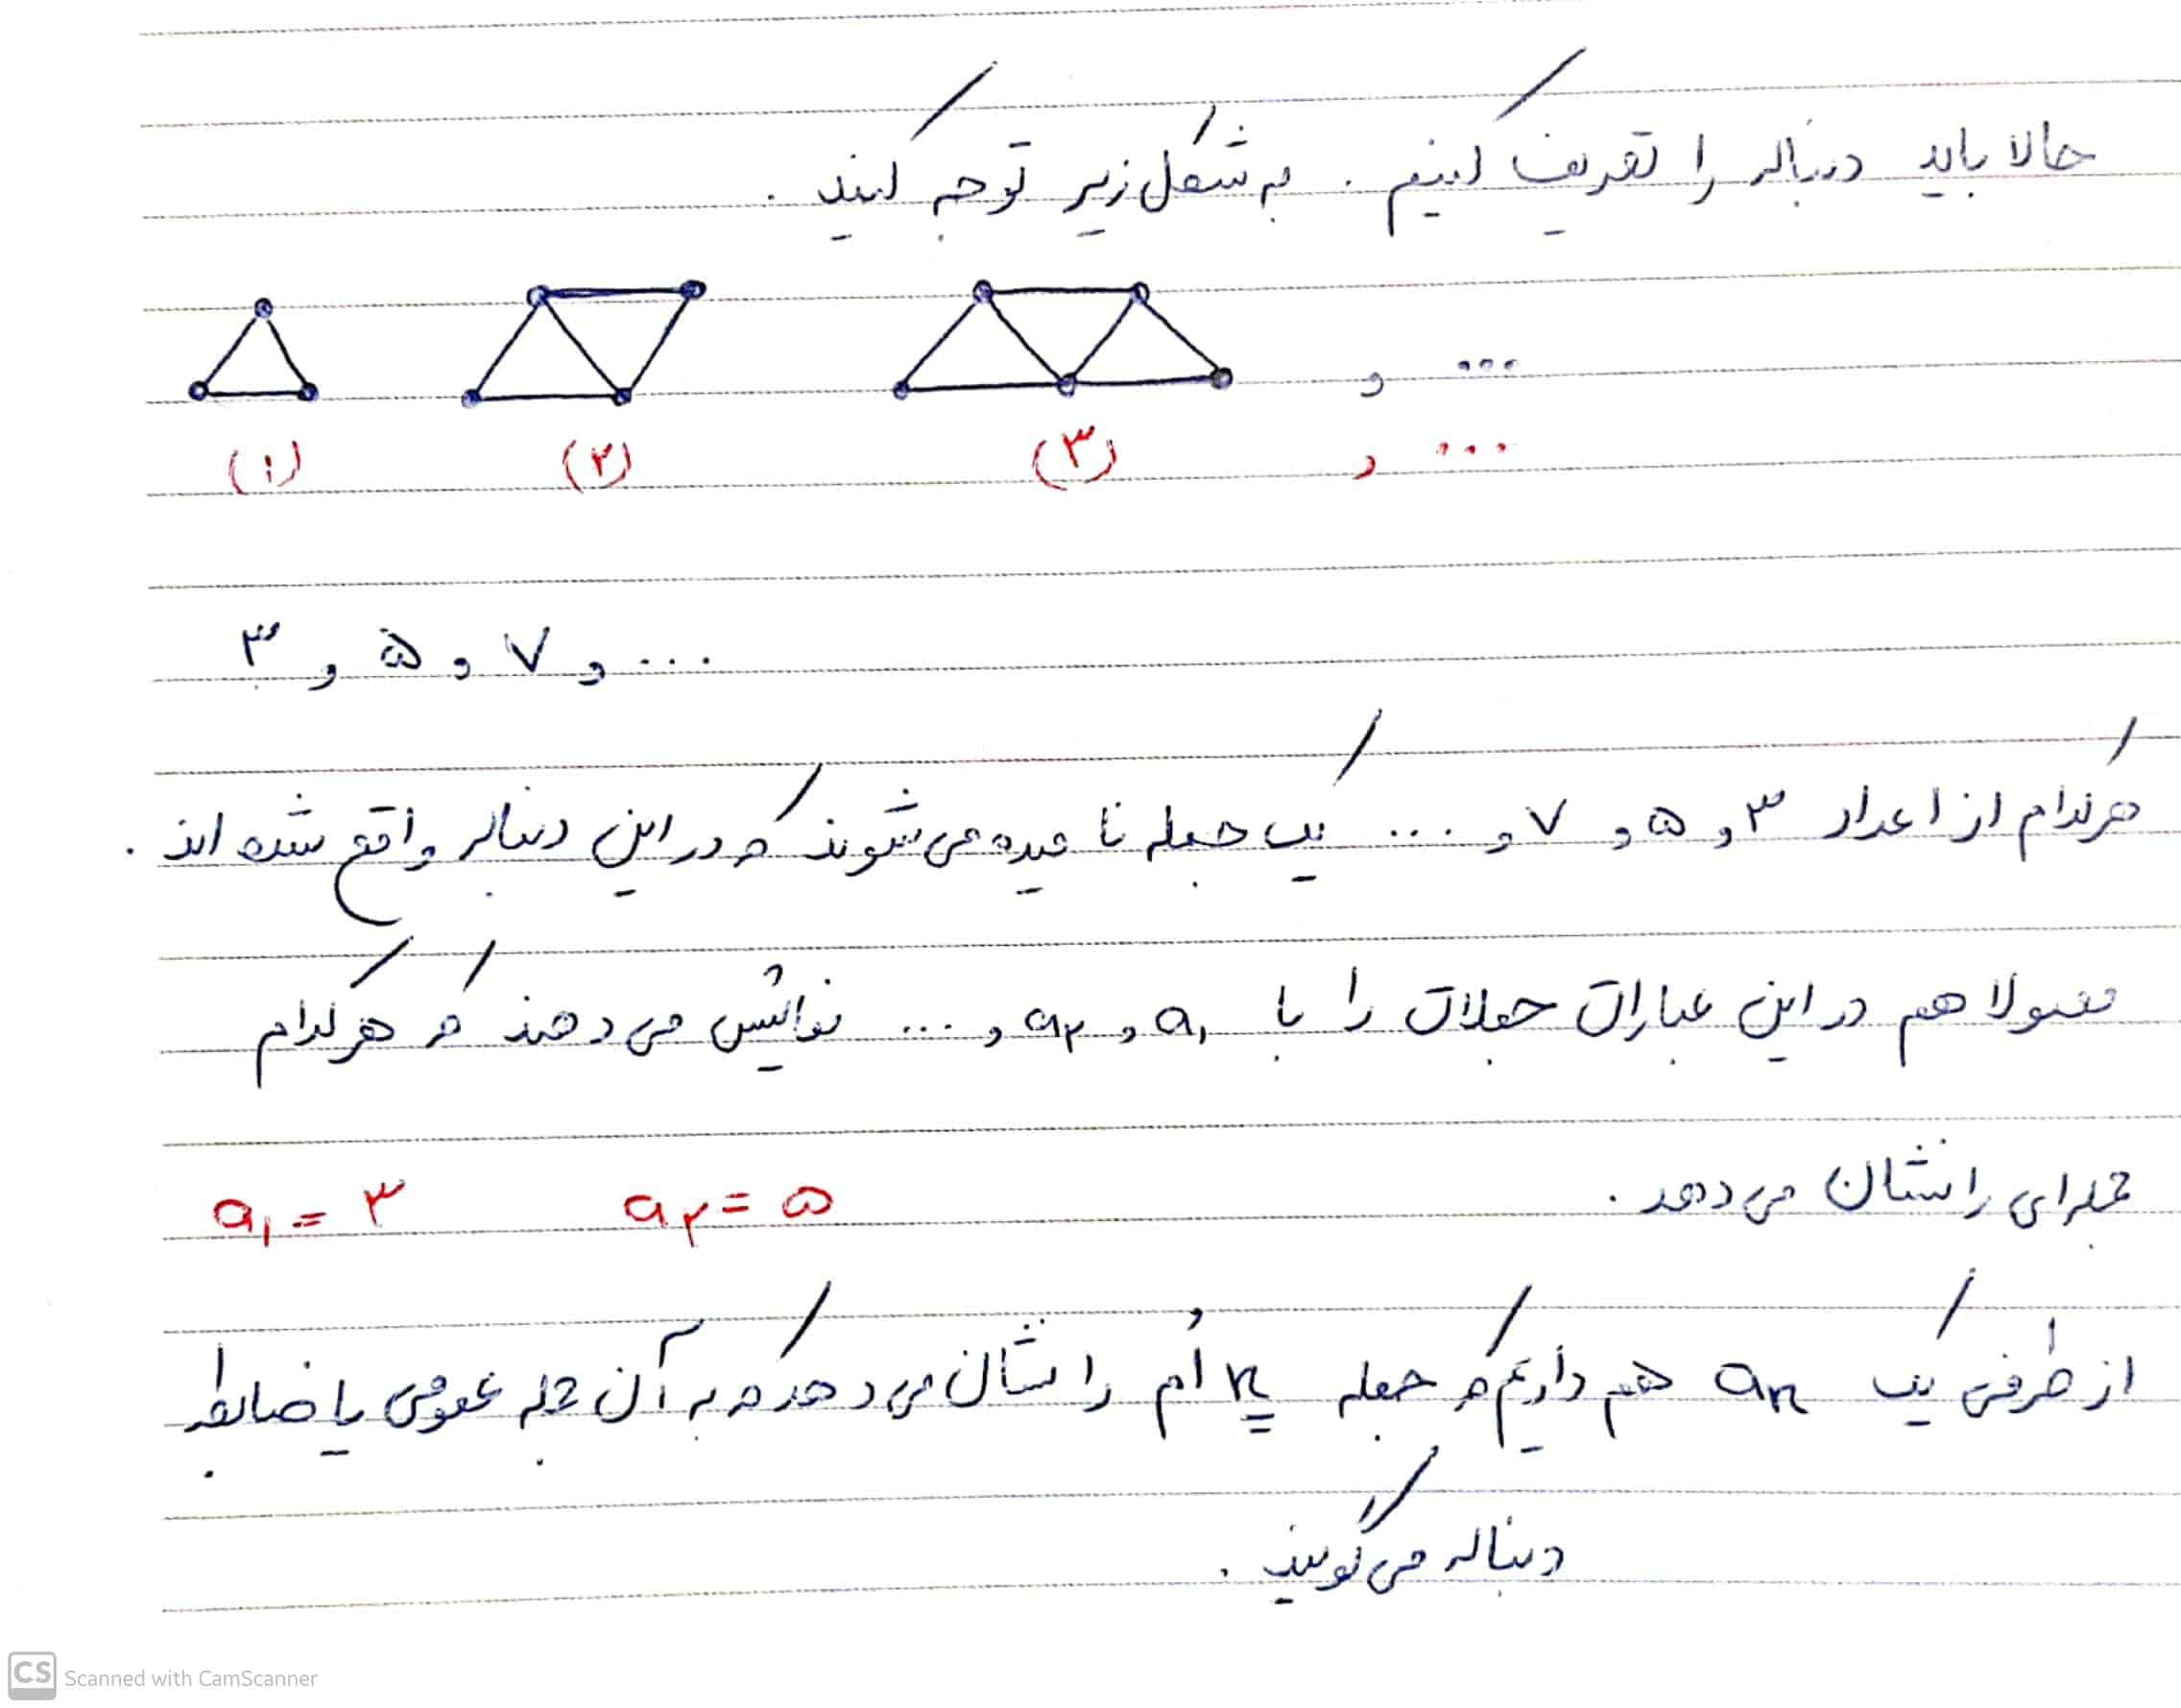 حالا باید دنباله را تعریف کنیم . به شکل زیر توجه کنید .
(۱) (۲) (۳) و ...
۳ و ۵ و ۷ و ...
هرکدام از اعداد ۳ و ۵ و ۷ و ... یک جمله نامیده می شوند که در این دنباله واقع شده اند .
معمولا هم در این عبارات جملات را با a۱ و a۲ و ... نمایش می دهند که هر کدام
جمله ای را نشان می دهد . a۱ = ۳ a۲ = ۵
از طرفی یک an هم داریم که جمله n اُم را نشان می دهد که به آن جمله عمومی یا ضابطه
دنباله می گویند .
CS Scanned with CamScanner